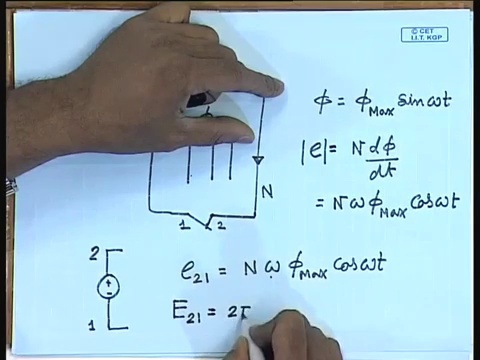 © CET
I.I.T. KGP
ϕ = ϕMax sinωt
|e| = N dϕ/dt
= NωϕMax cosωt
N
1 2
2
1
e21 = N ω ϕMax cosωt
E21 = 2π